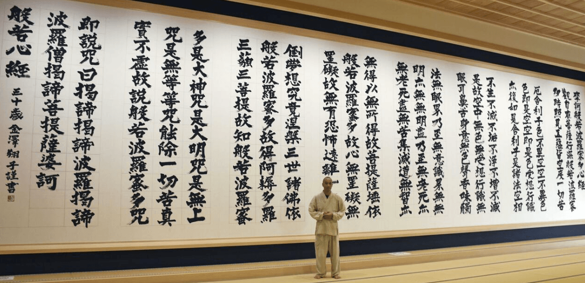 厄舍利子色不異空空不異色
色即是空空即是色受想行識
亦復如是舍利子是諸法空相
不生不滅不垢不淨不增不減
是故空中無色無受想行識無
眼耳鼻舌身意無色聲香味觸
法無眼界乃至無意識界無無
明亦無無明盡乃至無老死亦
無老死盡無苦集滅道無智亦
無得以無所得故菩提薩埵依
般若波羅蜜多故心無罣礙無
罣礙故無有恐怖遠離
倒夢想究竟涅槃三世諸佛依
般若波羅蜜多故得阿耨多羅
三藐三菩提故知般若波羅蜜
多是大神咒是大明咒是無上
咒是無等等咒能除一切苦真
實不虛故説般若波羅蜜多咒
即説咒曰揭諦揭諦波羅揭諦
波羅僧揭諦菩提薩婆訶
般若心經
三十歳 金澤翔子謹書